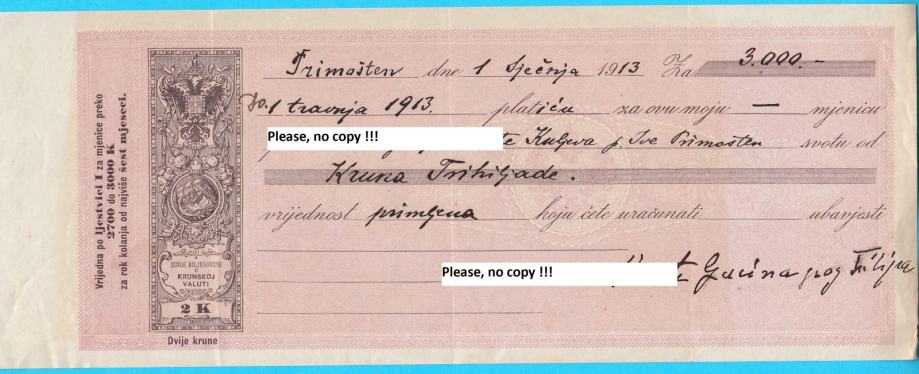 Vrijedna po ljestvici I za mjenice preko
2700 do 3000 K
za rok kolanja od najviše šest mjeseci.
IZNOS BILJEGOVINE
U
KRUNSKOJ
VALUTI
2 K
Dvije krune
Primošten dne 1 Sječnja 1913 Za 3.000.-
Do 1 travnja 1913. platiću za ovu moju — mjenicu
Please, no copy !!!
te Kuljeva p. Ive Primošten svotu od
Kruna Trihiljade.
vrijednost primljena koju ćete uračunati ubavjesti
Please, no copy !!!
Gucina pog